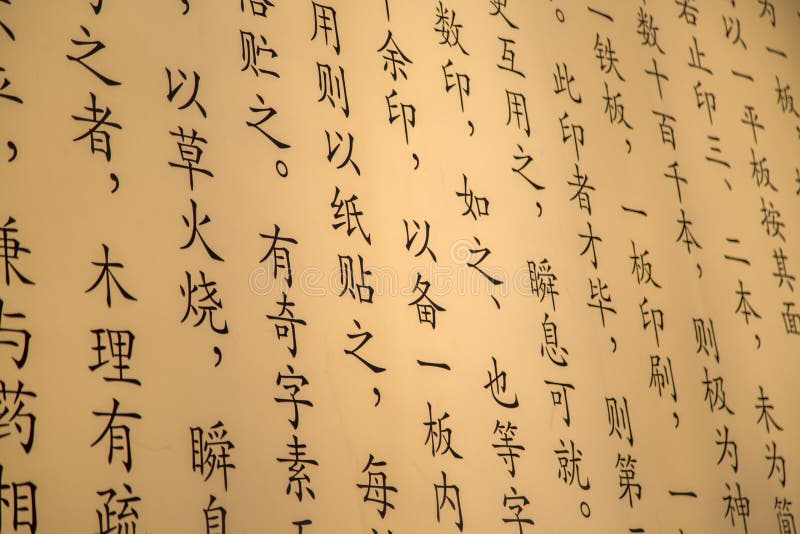 为一板
以一平板按其面
若止印三、二本，未为简
数十百千本，则极为神
一铁板，一板印刷，一
。此印者才毕，则第二
更互用之，瞬息可就。
数印，如之、也等字
十余印，以备一板内
用则以纸贴之，每
贮之。有奇字素
，以草火烧，瞬息
之者，木理有疏
平，兼与药相
dreamstime